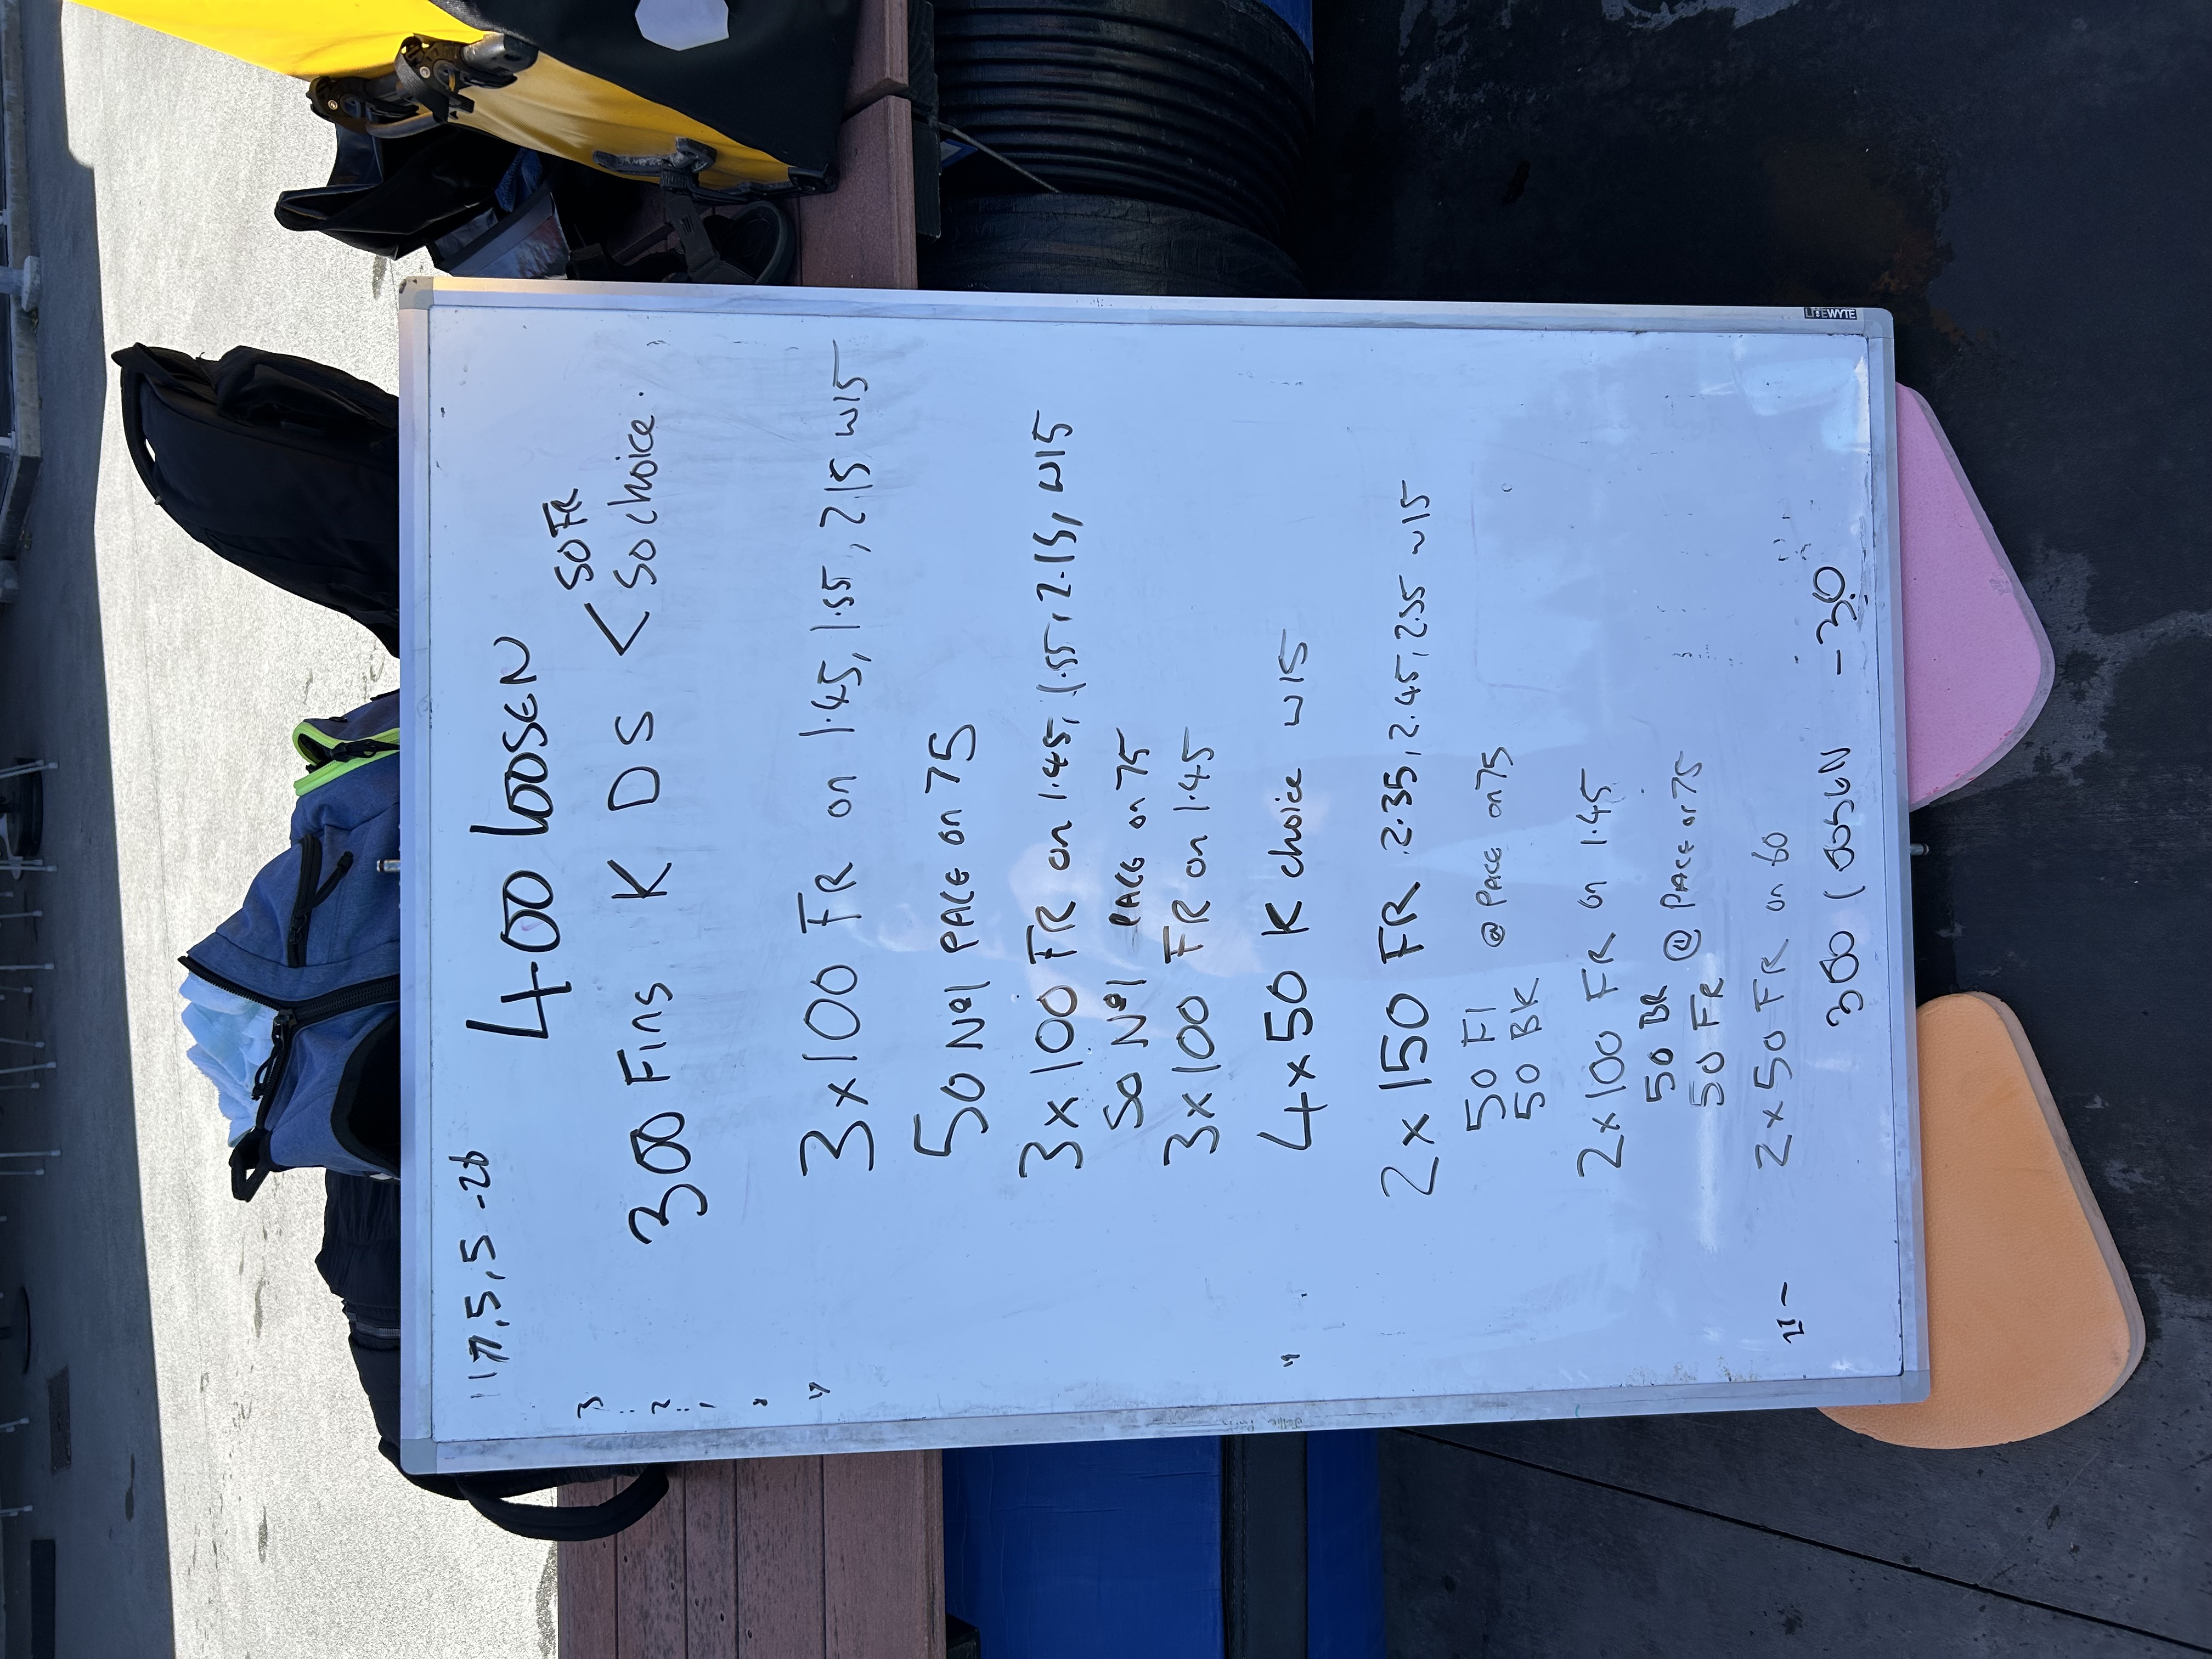 17.5.-26
400 LOOSEN
50 FR
300 Fins K DS < 50 choice.
3x100 FR on 1.45, 1.55, 2.15 W15
50 No1 PACE on 75
3x100 FR on 1.45, 1.55, 2.15, W15
50 No1 PACE on 75
3x100 FR on 1.45
4x50 K choice W15
2x150 FR 2.35, 2.45, 2.55 W15
50 FI @ PACE on 75
50 BK
2x100 FR on 1.45
50 BR @ PACE on 75
50 FR
2x50 FR on 60
300 LOOSEN - 3.0
LITEWYTE